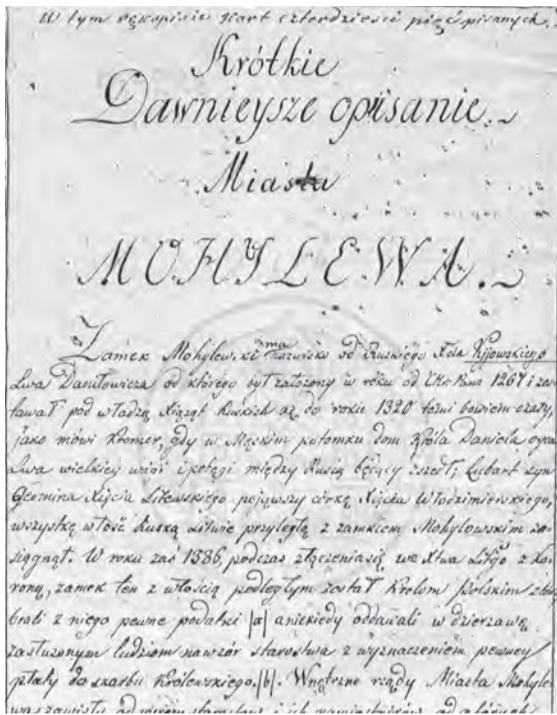 W tym rękopisie kart czterdzieści pięć pisanych.
Krótkie
Dawnieysze opisanie
Miasta
MOHYLEWA.
Zamek Mohylewski ma nazwisko od Ruskiego Xcia Kijowskiego
Lwa Daniłowicza od którego był założony w roku od Chr: Pana 1267 i zos
tawał pod władzą Xiąząt Ruskich aż do roku 1320 temi bowiem czasy
jako mówi Kromer, gdy w Męskim potomku dom Króla Daniela oyca
Lwa wielkiey wziości i potęgi między Rusią będący zszedł; Lubart syn
Gedmina Xcia Litewskiego pojąwszy córkę Xięcia Włodzimierskiego,
wszystkę włość Ruską Litwie przyległą z zamkiem Mohylowskim za
siągnął. W roku zaś 1386, podczas złączenia się Xtwa Litgo z Ko
roną, zamek ten z włością podległym został Krolom Polskim
brali z niego pewne podatki |a| a niekiedy oddawali w dzierżawę
zasłużonym ludziom nawzór starostwa z wyznaczeniem pewney
płaty do skarbu Królewskiego. |b|. Wnętrzne rządy Miasta Mohyle
wa zawisły od starostów i ich namiestników, od których